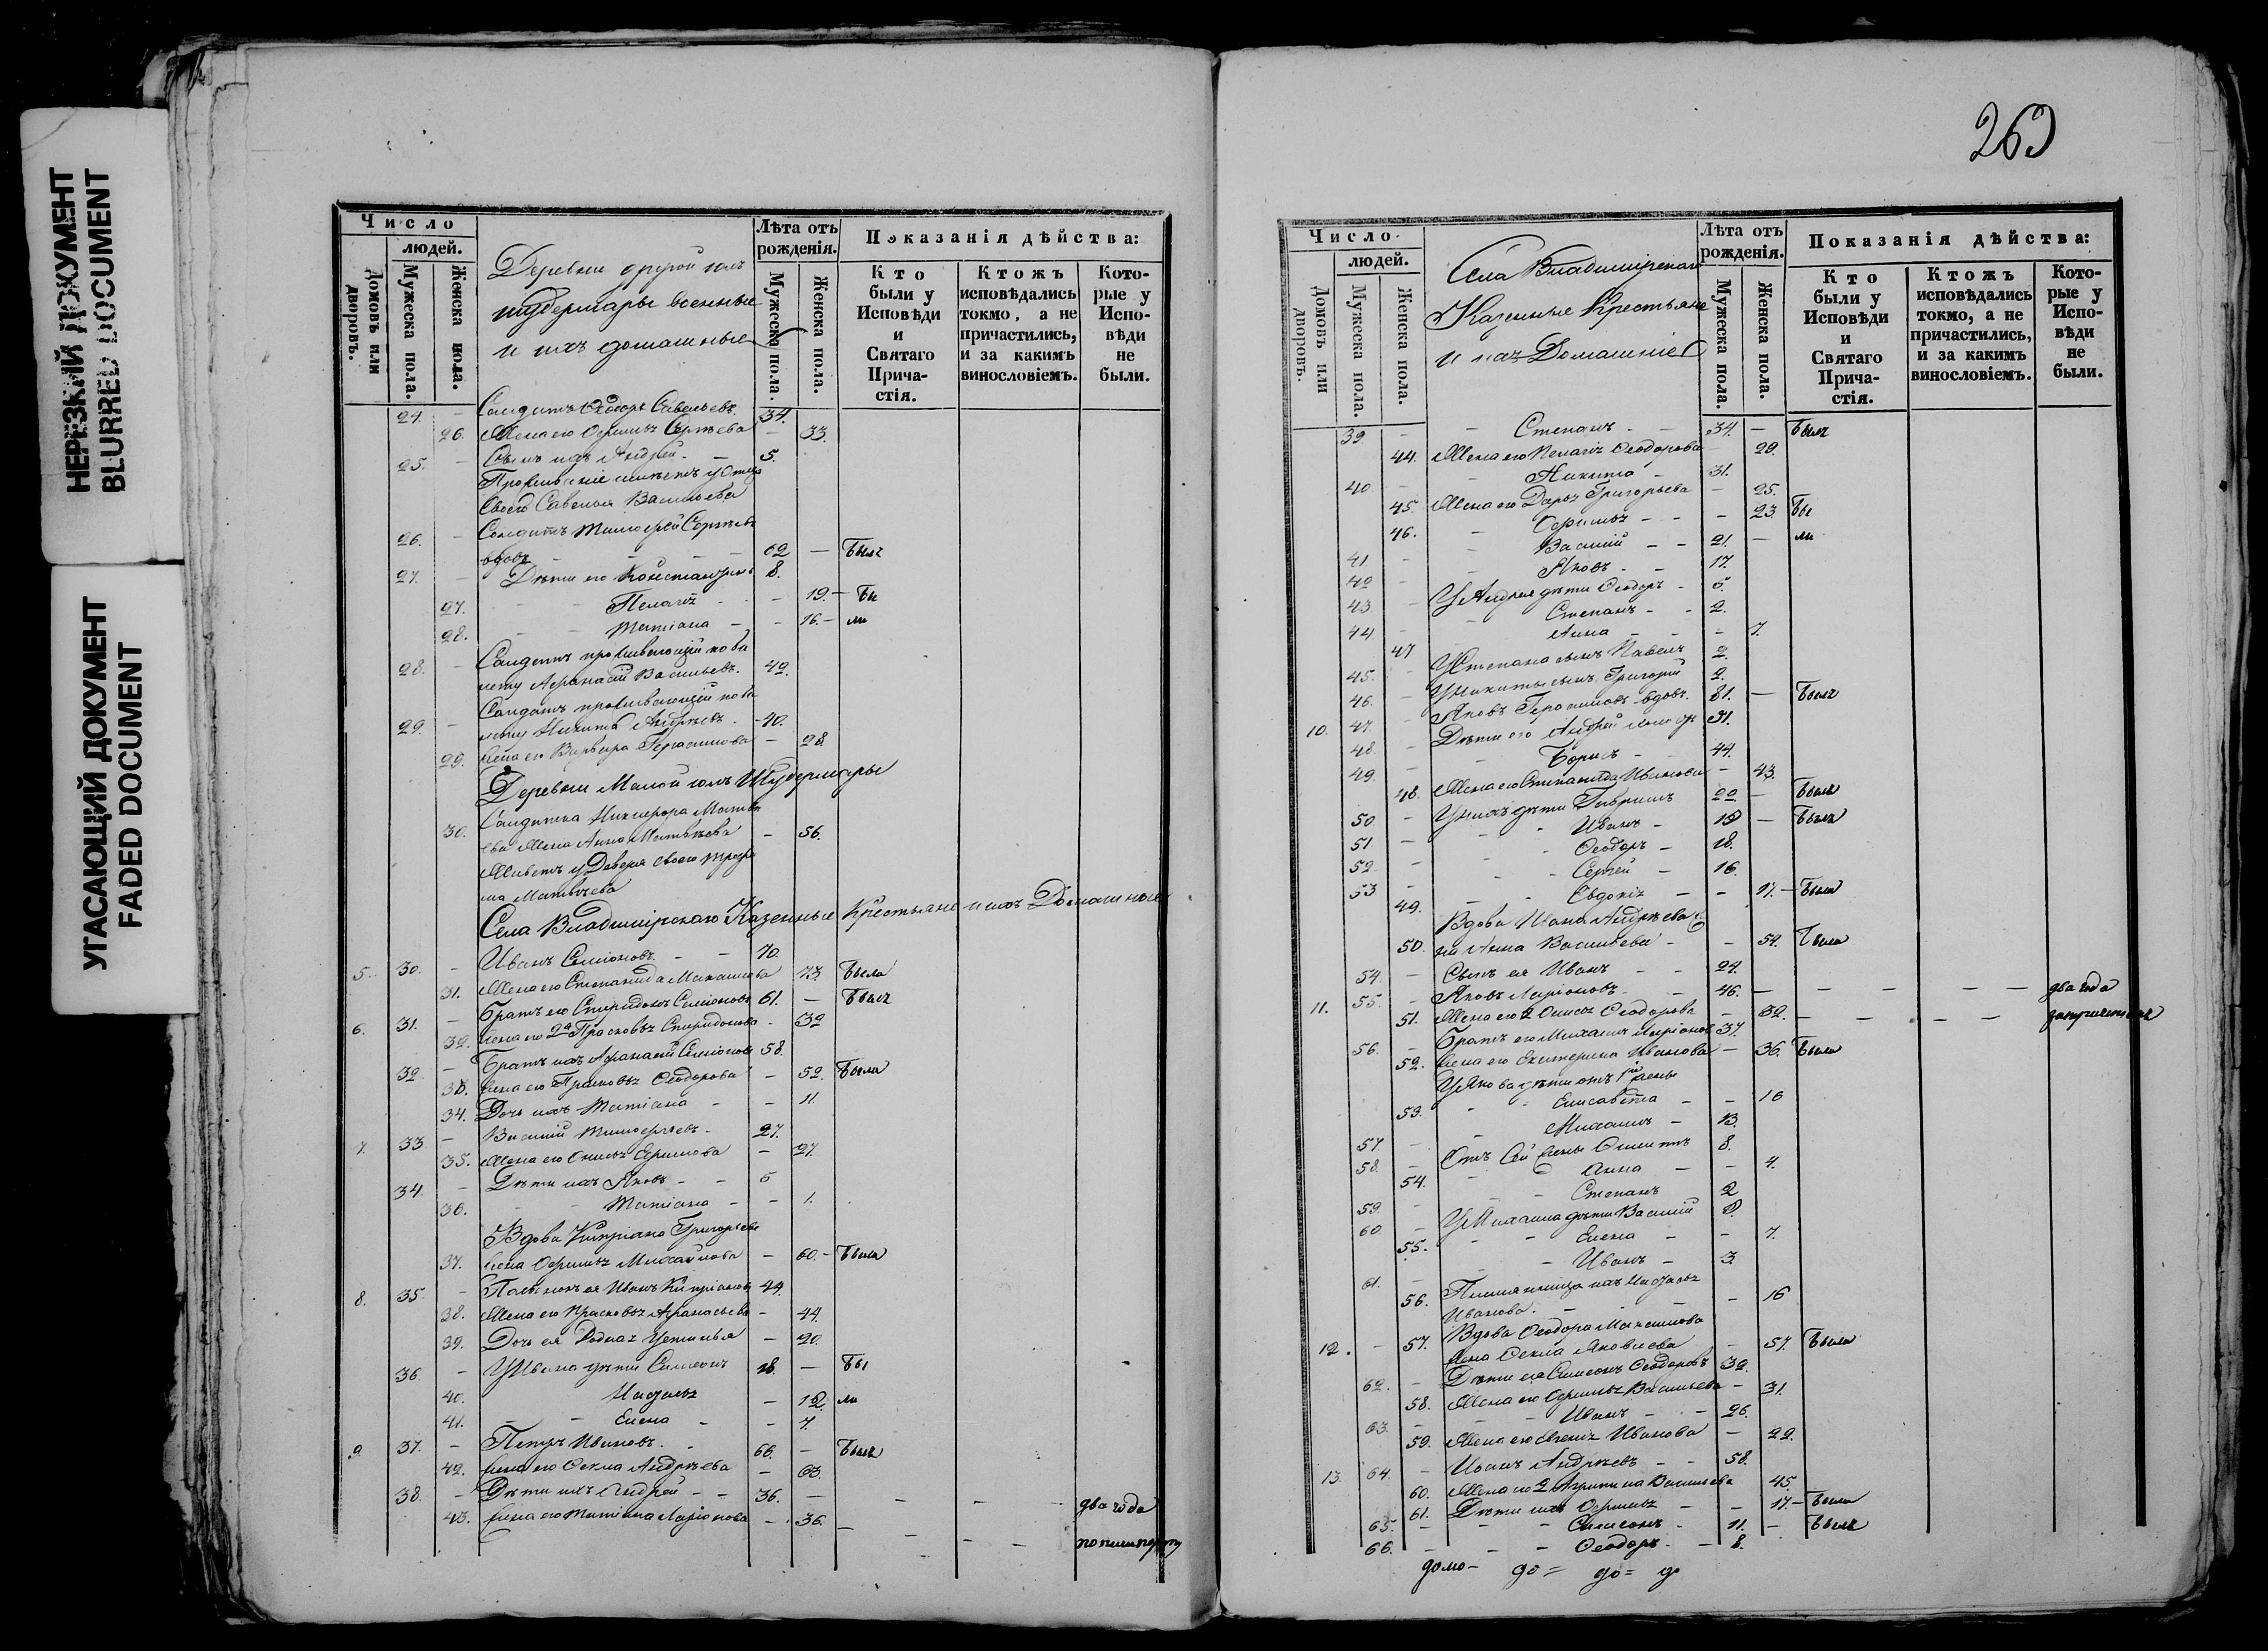 НЕРЕЗКИЙ ДОКУМЕНТ
BLURRED DOCUMENT
УГАСАЮЩИЙ ДОКУМЕНТ
FADED DOCUMENT
Число
людей.
Домовъ или дворовъ.
Мужеска пола.
Женска пола.
Деревни другой юлъ
шудермары военные
и ихъ домашные
Лѣта отъ рожденія.
Мужеска пола.
Женска пола.
Показанія дѣйства:
Кто были у Исповѣди и Святаго Причастія.
Ктожъ исповѣдались токмо, а не причастились, и за какимъ винословіемъ.
Которые у Исповѣди не были.
24. - Солдатъ Ѳеодоръ Савельевъ 34.
26. Жена его Ефимья Сергѣева - 33.
25. - Сынъ ихъ Андрей - 5.
у отца
своего Савелья Васильева
26. - Солдатъ Тимоѳей Сергѣевъ
вдовъ 62 - Былъ
27. - Дѣти его Константинъ 8.
27. Пелагія - 19. - Бы
28. Татіана - 16. - ли
Солдатъ проживающій по би
28. - лету Аѳанасій Васильевъ. 42.
Солдатъ проживающій по би
29. - лету Никита Андреевъ. 40.
29. Жена его Варвара Герасимова - 28.
Деревни Малой юлъ Шудермары
Солдатка Никифора Матвѣ
30. ева жена Анна Матвѣева - 56.
Живетъ у Деверя своего Трофи
ма Матвѣева
Села Владимірскаго Казенные Крестьяне и ихъ Домашные
5. 30. - Иванъ Симіоновъ 70.
31. Жена его Степанида Максимова 73. Была
6. 31. - Братъ его Спиридонъ Симіоновъ 61. - Былъ
32. Жена его 2я Прасковья Спиридонова - 32
32 - Братъ ихъ Аѳанасій Симіоновъ 58.
33. Жена его Прасковья Ѳеодорова - 52. Была
34. Дочь ихъ Татіана - - 11.
7. 33 - Василій Тимоѳеевъ - 27.
35. Жена его Ефимова - 27.
34. - Дѣти ихъ Яковъ - - 5
36. Татіана - - 1.
Вдова Кипріана Григорьева
37. жена Ефимья Михайлова - 60. - Была
8. 35. - ея Иванъ Кипріановъ 44.
38. Жена его Прасковья Аѳанасьева - 44.
39. Дочь ея Устинья - 20.
36. - У Ивана дѣти Симеонъ 18. - Бы
40. Наталья - 12. ли
41. Елена - - 7.
9 37. - Петръ Ивановъ. 66. - Былъ
42. жена его Ѳекла Андреева - 63.
38. - Дѣти ихъ Андрей - - 36. - - - - два года
43. жена его Татіана Ларіонова - 36. - - - -
269
Число
людей.
Домовъ или дворовъ.
Мужеска пола.
Женска пола.
Села Владимірскаго
Казенные Крестьяне
и ихъ Домашніе
Лѣта отъ рожденія.
Мужеска пола.
Женска пола.
Показанія дѣйства:
Кто были у Исповѣди и Святаго Причастія.
Ктожъ исповѣдались токмо, а не причастились, и за какимъ винословіемъ.
Которые у Исповѣди не были.
39. - - Степанъ - - 34. - Былъ
44. Жена его Пелагія Ѳеодорова 29.
40 - - Никита - 31.
45. Жена его Дарья Григорьева - 25.
46. - Ефимья - - - 23. Бы
41 - - Василій - - 21. - ли
42 - Яковъ - - 17.
43. - У Андрея дѣти Ѳеодоръ - 5.
44. - - Степанъ - - 2.
47 Анна - - - 7.
45. - У Степана сынъ Павелъ 2.
46. - У Никиты сынъ Григорій 2.
10. 47. - Яковъ Герасимовъ вдовъ. 81. - Былъ
48. - Дѣти его Андрей 51.
49. - - Борисъ - 44.
48. Жена его Степанида Иванова - 43.
50 - У нихъ дѣти Гавріилъ 22. - Былъ
51. - - - Иванъ - 19 - Былъ
52. - - - Ѳеодоръ - 18.
53 - - - Сергей - 16.
49. - - Евдокія - - 17. - Была
Вдова Ивана Андреева же
50. на Анна Васильева - - 54. Была
54. - Сынъ ея Иванъ - - 24.
11. 55. - Яковъ Ларіоновъ - - 46. - - - - два года
51. Жена его 2 Ѳеодорова - 32. - - - -
56. - Братъ его Михаилъ Ларіоновъ 37.
52. Жена его Екатерина Иванова - 36. Была
У Якова дѣти отъ 1й жены
53. - - Елисавета - - 16
57. - - Михаилъ - 13.
58. - Отъ сей жены 8.
54. - Анна - - 4.
59. - - - Степанъ 2
60. - У Михаила дѣти Василій 8.
55. - - Елена - - 7.
61. - - - Иванъ - 3.
56. ихъ Наталья
Иванова. - - - 16
12. - 57. Вдова Ѳеодора Максимова
жена Ѳекла Яковлева - 57. Была
62. - Дѣти ея Симеонъ Ѳеодоровъ 32.
58. Жена его Ефимья Васильева - 31.
63. - - - Иванъ - - 26.
59. Жена его Иванова - 22.
13. 64. - Иванъ Андреевъ - - 58.
60. Жена его 2 Агрипина Васильева 45.
61. Дѣти ихъ Ефимья - - 17. - Была
65. - - - Симеонъ - 11. - Былъ
66. - - - Ѳеодоръ - - 8.